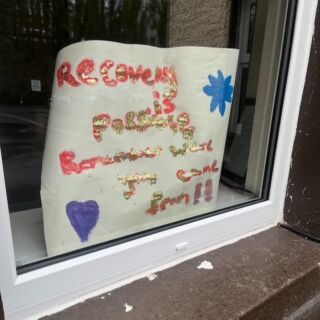 Recovery
is
Possible
Remember where
you came
from!!